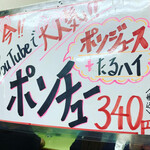 今!!
YouTubeで大人気!!
ポンジュース
+
たるハイ
ポンチュー
340円